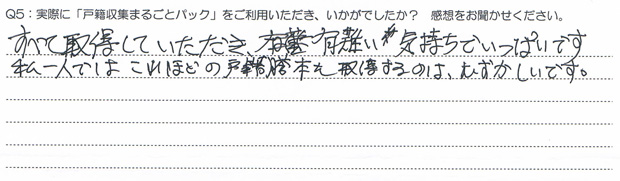 Q5:実際に「戸籍収集まるごとパック」をご利用いただき、いかがでしたか? 感想をお聞かせください。
すべて取得していただき、有難い気持ちでいっぱいです
私一人では これほどの戸籍謄本を取得するのは、むずかしいです。